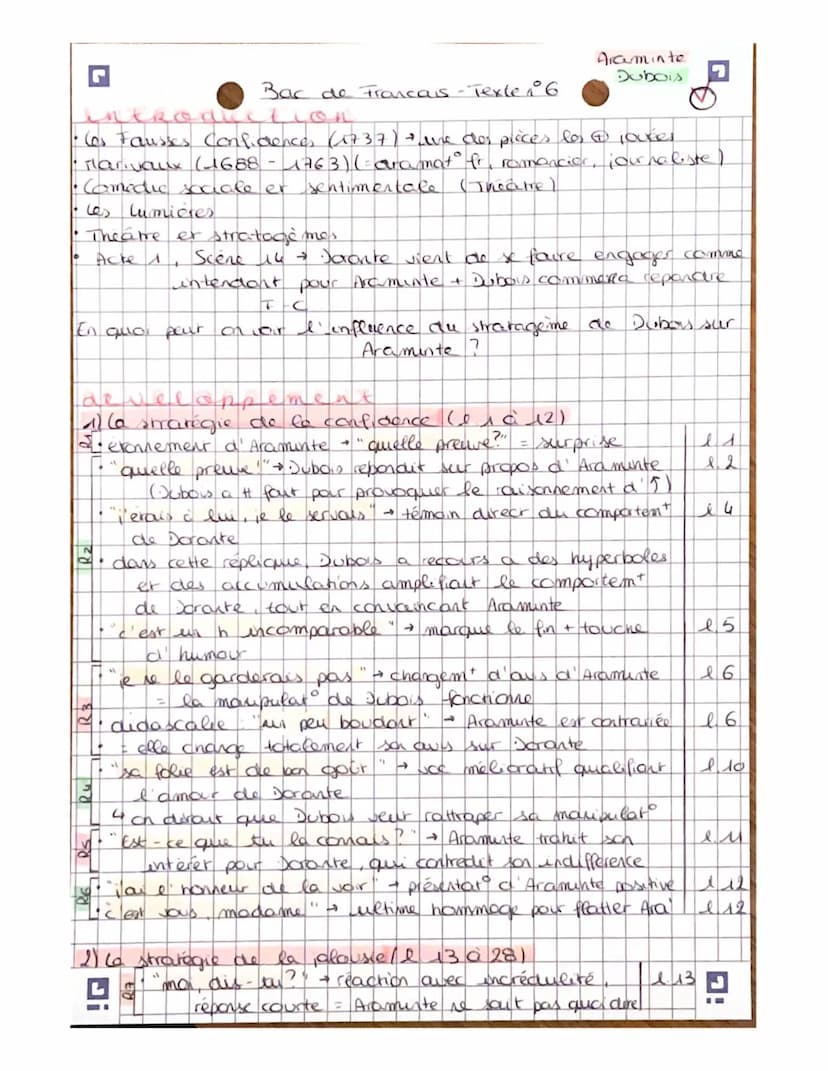 Araminte
Dubois
Bac de Francais - Texte n°6
introduction
• Les Fausses Confidences (1737) → une des pièces les ⊕ jouées
• Marivaux (1688 - 1763) (= dramat° fr, romancier, journaliste)
• Comédie sociale et sentimentale (Théâtre)
• Les Lumières
• Théâtre et stratagèmes
• Acte 1, Scène 14 → Dorante vient de se faire engager comme
intendant pour Araminte + Dubois
T C
En quoi peut on voir l'influence du stratagème de Dubois sur
Araminte ?
développement
1) La stratégie de la confidence (l 1 à 12)
R1 • étonnement d'Araminte → "quelle preuve?" = surprise l 1
• "quelle preuve!" → Dubois rebondit sur propos d'Araminte l.2
(Dubois a tt fait pour provoquer le raisonnement d'↑)
• "j'étais à lui, je le servais" → témoin direct du comportemt l 4
de Dorante
R2 • dans cette réplique, Dubois a recours a des hyperboles
et des accumulations amplifiant le comportemt
de Dorante, tout en convaincant Araminte
• "c'est un h incomparable" → marque le fin + touche l.5
d'humour
"je ne le garderais pas" → changemt d'avis d'Araminte l 6
= la manipulat° de Dubois fonctionne
R3 • didascalie : "un peu boudant" → Araminte est contrariée l.6
• = elle change totalement son avis sur Dorante
• "sa folie est de bon goût" → voc mélioratif qualifiant l.10
R4 l'amour de Dorante
↳ on dirait que Dubois veut rattraper sa manipulat°
R5 • "Est-ce que tu la connais?" → Araminte trahit son l 11
intérêt pour Dorante, qui contredit son indifférence
R6 • "j'ai l'honneur de la voir" → présentat° d'Araminte positive l 12
• "c'est vous, madame" → ultime hommage pour flatter Ara' l 12
2) La stratégie de la jalousie (l 13 à 28)
R7 • "moi, dis-tu?" → réaction avec incrédulité, l 13
réponse courte = Araminte ne sait pas quoi dire